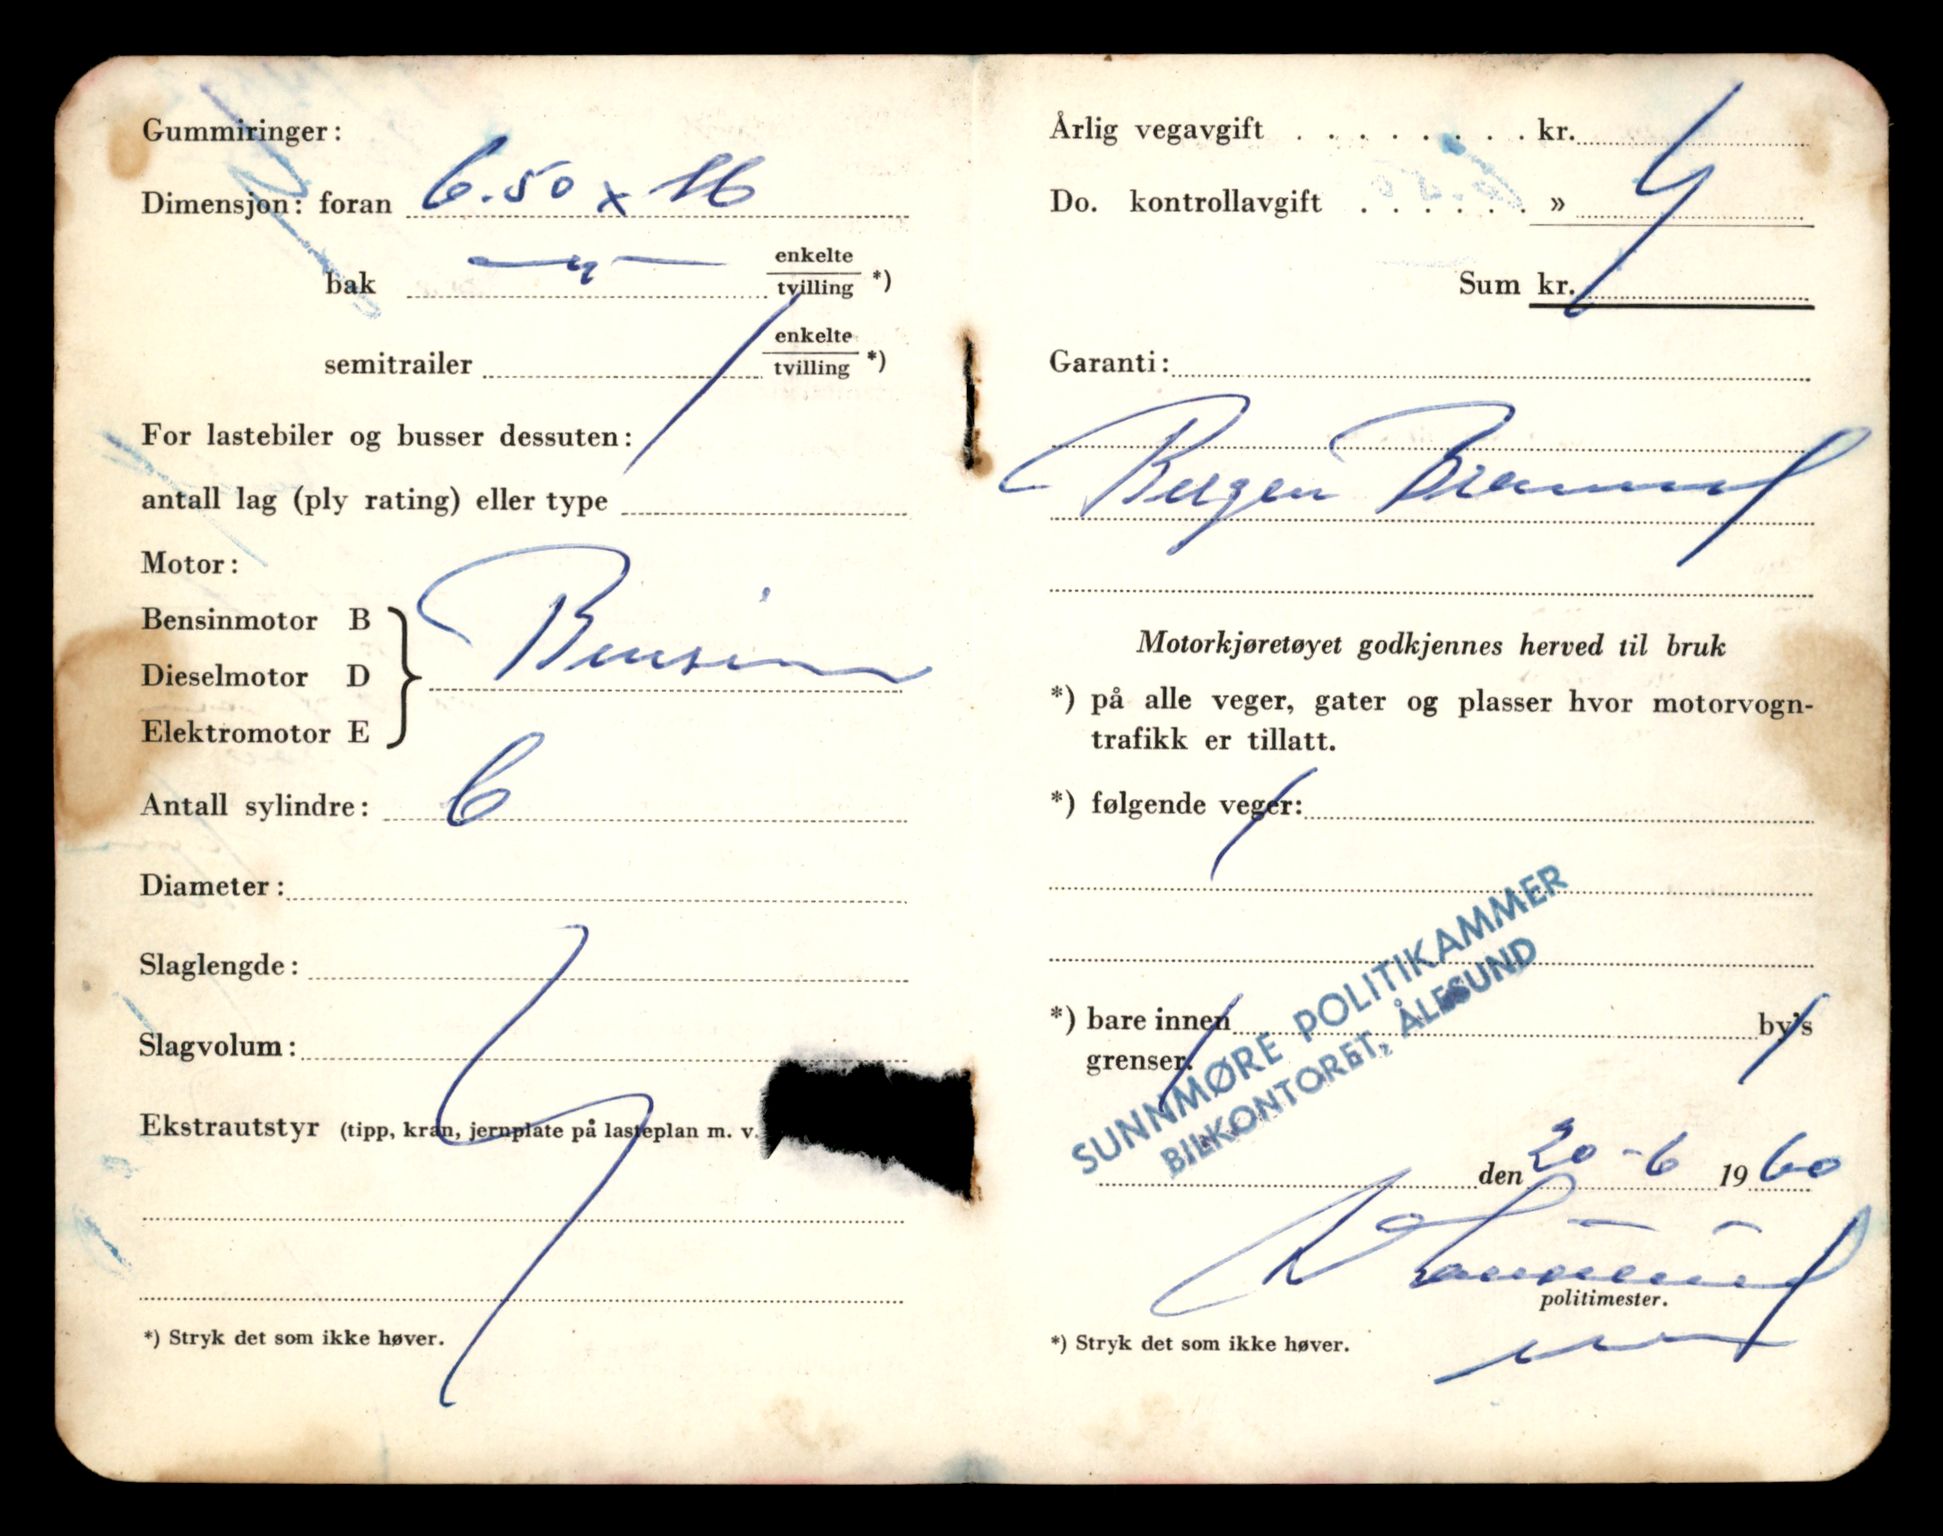 Gummiringer:
Dimensjon: foran 6.50 x 16
bak — " — enkelte
tvilling *)
semitrailer enkelte
tvilling *)
For lastebiler og busser dessuten:
antall lag (ply rating) eller type
Motor:
Bensinmotor B
Dieselmotor D
Elektromotor E
Bensin
Antall sylindre: 6
Diameter:
Slaglengde:
Slagvolum:
Ekstrautstyr (tipp, kran, jernplate på lasteplan m. v.
*) Stryk det som ikke høver.
Årlig vegavgift . . . . . . . . kr.
Do. kontrollavgift . . . . . . »
Sum kr.
Garanti:
Bergen Brannd
Motorkjøretøyet godkjennes herved til bruk
*) på alle veger, gater og plasser hvor motorvogn-
trafikk er tillatt.
*) følgende veger:
*) bare innen by's
grenser.
SUNNMØRE POLITIKAMMER
BILKONTORET, ÅLESUND
den 20-6 1960
politimester.
*) Stryk det som ikke høver.